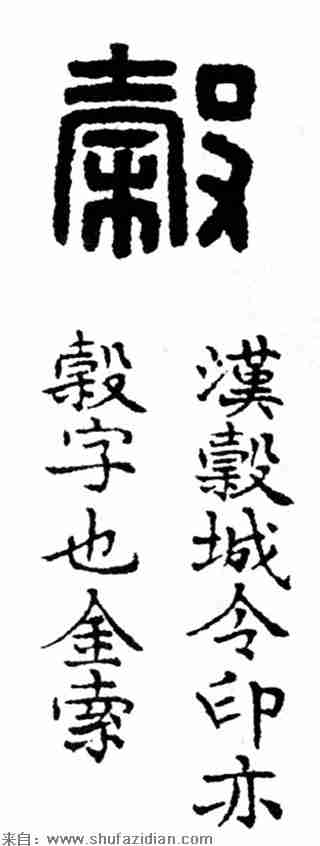 穀
漢穀城令印亦
穀字也金索
来自：www.shufazidian.com